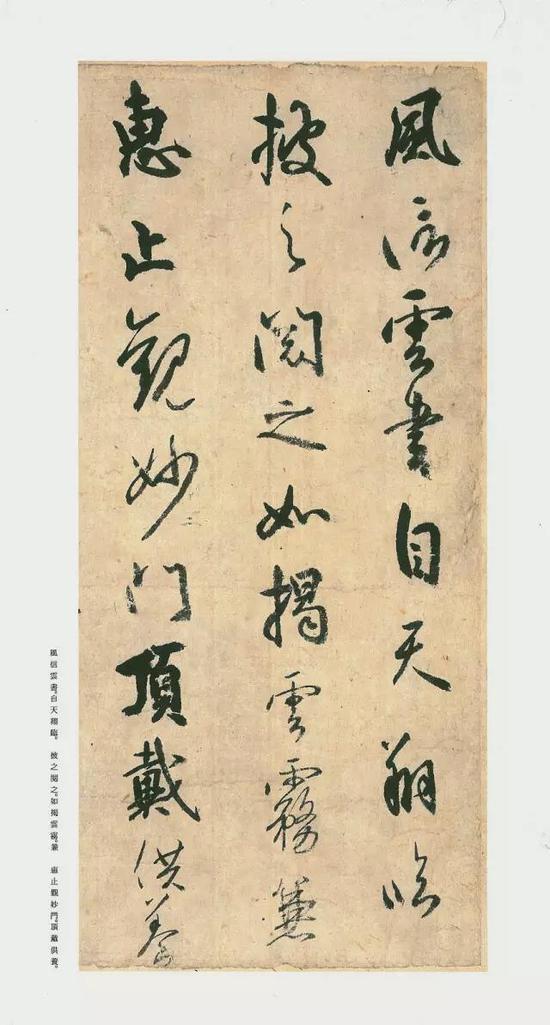 風信雲書自天翔臨
披之閲之如揭雲霧兼
惠止觀妙門頂戴供養
風信雲書。自天翔臨。 披之閲之。如揭雲霧。兼 惠止觀妙門。頂戴供養。